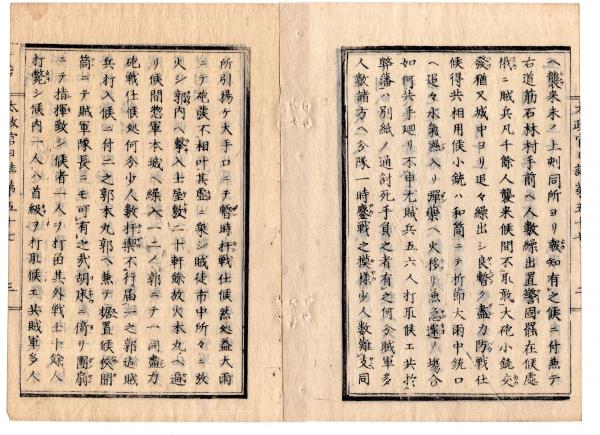 ヘ襲来未ノ上刻同所ヨリ報知有之候ニ付兼テ
右道筋石林村手前ヘ人数繰出置警固罷在候處
俄ニ賊兵凡千餘人襲来候間不取敢大砲小銃交
發猶又城中ヨリ追々繰出シ良暫ク盡力防戦仕
候得共相用候小銃ハ和筒ニテ折節大雨中銃口
ヘ追々水氣熱入リ弾薬ヘ火移リ無急速ノ場合
如何共手廻リ不申尤賊兵五六人打取候エ共於
弊藩ハ別紙ノ通討死手負之者有之何分賊軍多
人数諸方ヘ分隊一時鏖戦之模様少人数難支同
太政官日誌第五十七
所引揚ケ大手口ニテ暫時扞戦仕候然処益大雨
ニテ砲談不相叶其虚ニ乗シ賊徒市中所々ニ放
火シ郭内ヘ撃入上屋敷二十軒餘放火本丸ヘ遍
リ候間惣軍本城ヘ繰入一二ノ郭ニテハ同盡力
砲戦仕候処何分少人数扞禦不行届二之郭迠賊
兵打入候ニ付二之郭本丸郭ヘ兼テ据置候挟開
筒ニテ賊軍隊長ニモ可有之哉胡床ニ倚リ團扇
ニテ指揮致シ候者一人ヲ打留其外戦士卜餘人
打斃シ候内一人ハ首級ヲ打取候エ共賊軍多人
太政官日誌第五十七